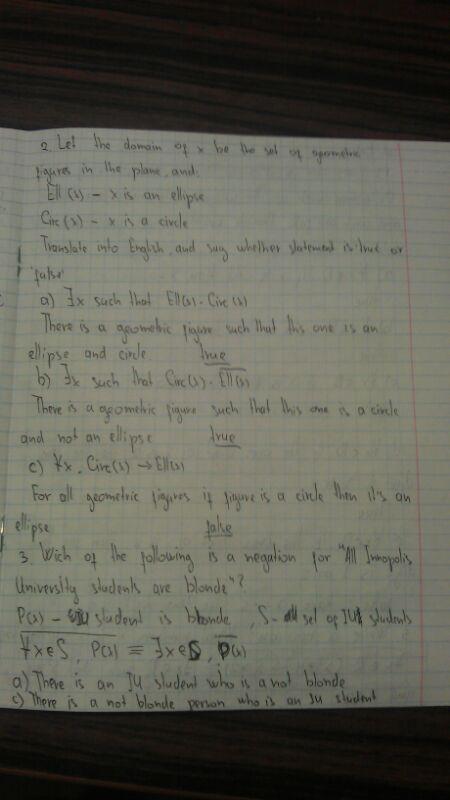 2. Let the domain of x be the set of geometric
figures in the plane, and:
Ell(x) - x is an ellipse
Circ(x) - x is a circle
Translate into English, and say whether statement is true or
false
a) ∃x such that Ell(x)·Circ(x)
There is a geometric figure such that this one is an
ellipse and circle. true
b) ∃x such that Circ(x)·E̅l̅l̅(̅x̅)̅
There is a geometric figure such that this one is a circle
and not an ellipse true
c) ∀x, Circ(x) → Ell(x)
For all geometric figures if figure is a circle then it's an
ellipse false
3. Wich of the following is a negation for "All Innopolis
University students are blonde"?
P(x) - IU student is blonde, S - set of IU students
∀̅x̅∈̅S̅,̅ ̅P̅(̅x̅)̅ ≡ ∃x∈S, P̅(x)
a) There is an IU student who is a not blonde
c) There is a not blonde person who is an IU student